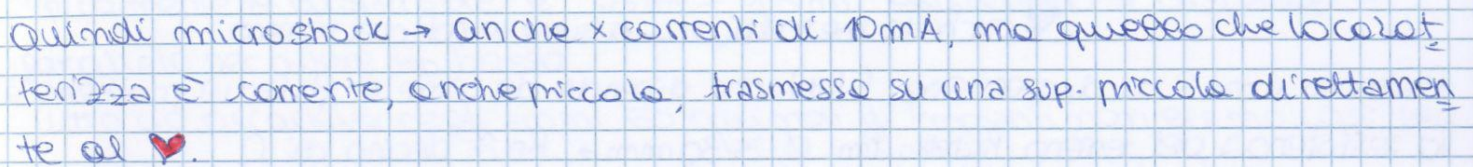 Quindi microshock → anche x correnti di 10mA, ma quello che lo carat
terizza è corrente, anche piccola, trasmessa su una sup. piccola direttamen
te al ♥.